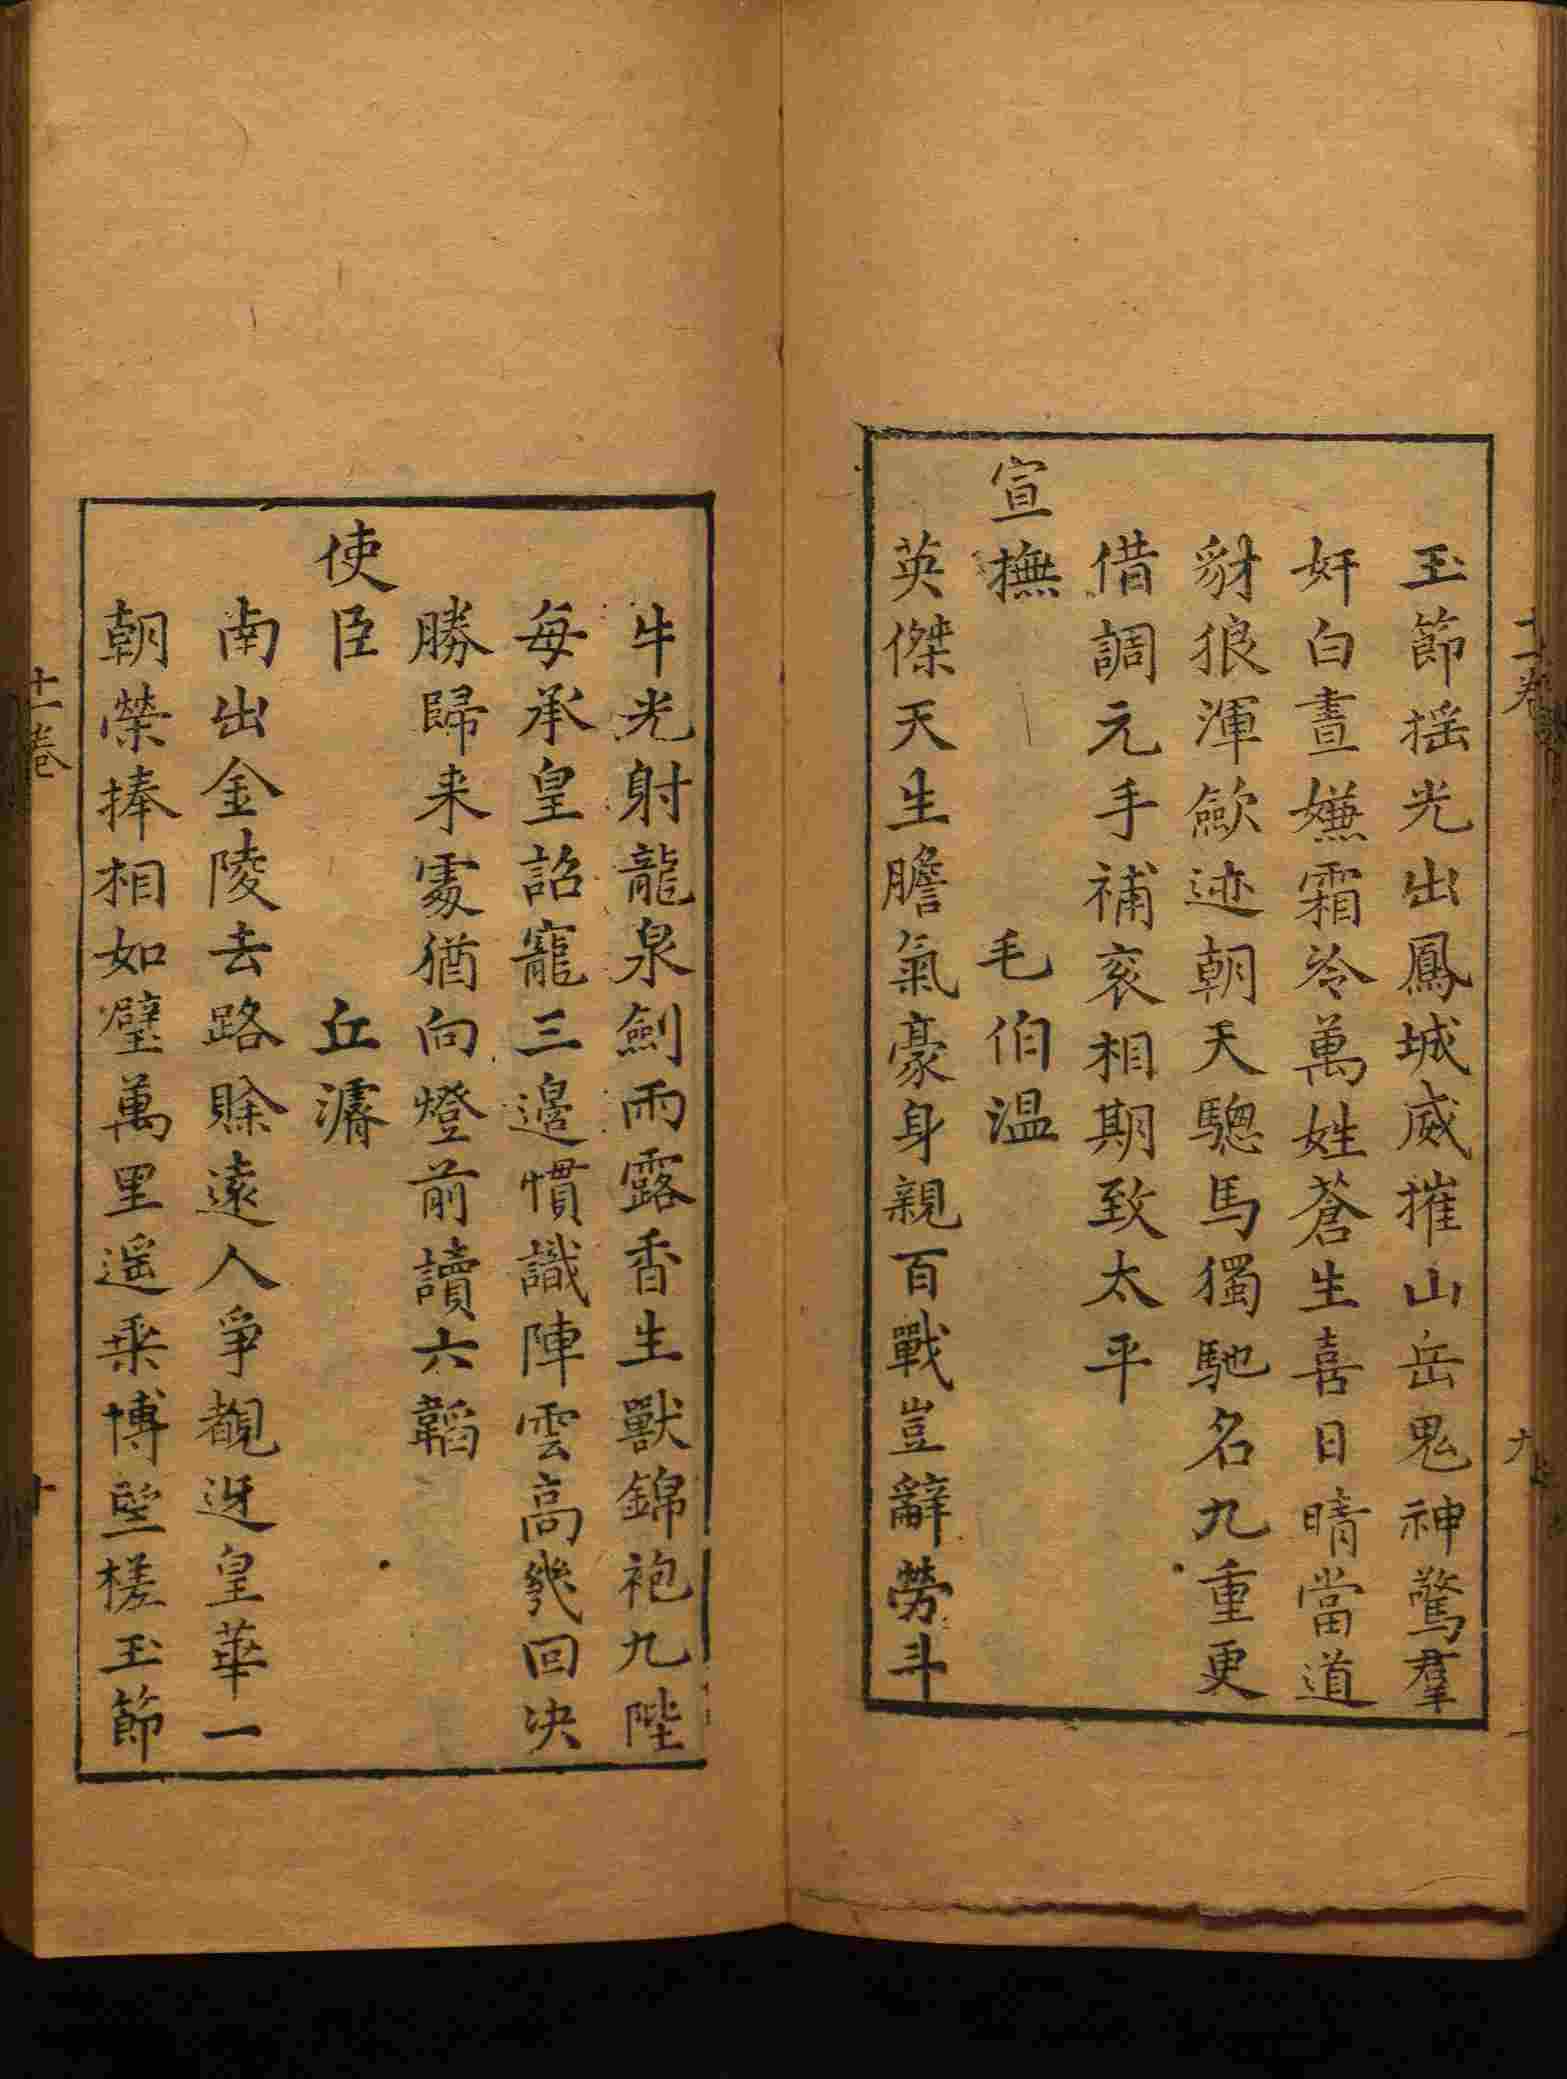 玉節揺光出鳳城威摧山岳鬼神驚羣
奸白晝嫌霜冷萬姓蒼生喜日晴當道
豺狼渾歛迹朝天驄馬獨馳名九重更
借調元手補衮相期致太平
宣撫 毛伯温
英傑天生膽氣豪身親百戰豈辭勞斗
牛光射龍泉劍雨露香生獸錦袍九陛
每承皇詔寵三邊慣識陣雲高幾回决
勝歸来䖏猶向燈前讀六韜
使臣 丘濬
南出金陵去路賖遠人爭覩迓皇華一
朝榮捧相如璧萬里遥乘博望槎玉節
十一卷
九
十一卷
十